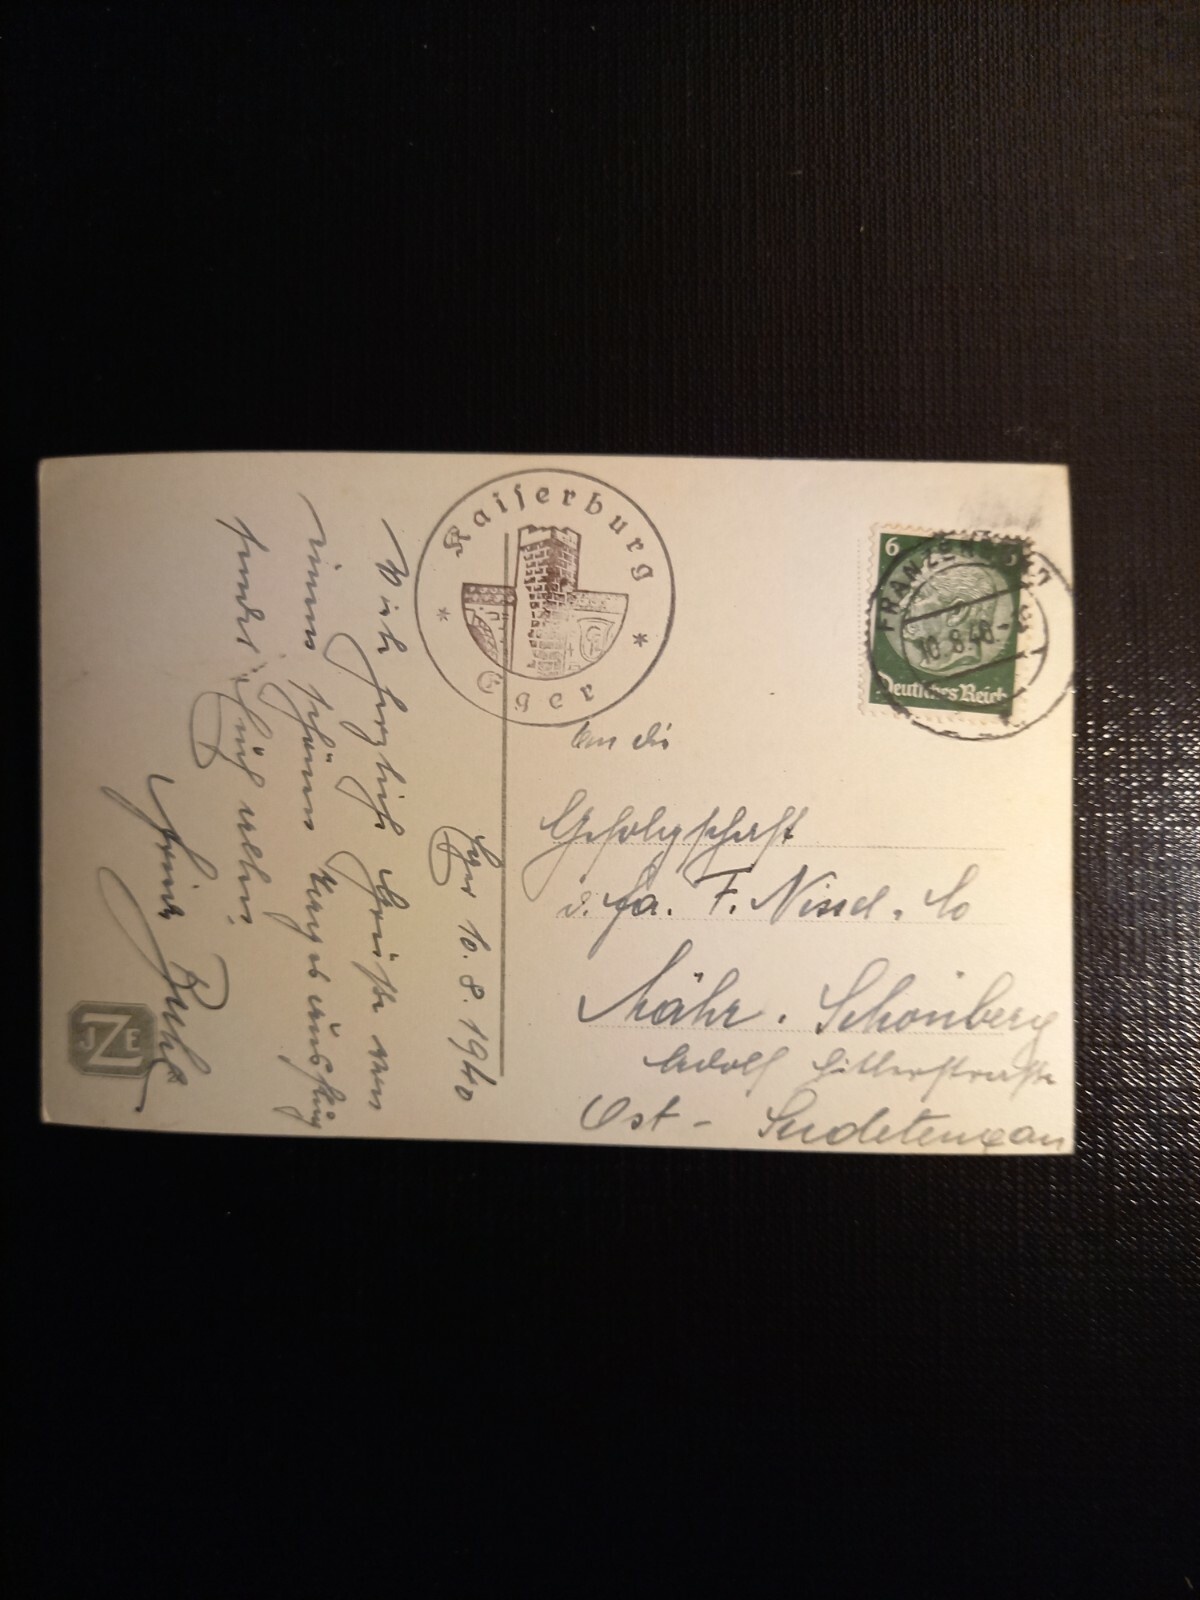 Kaiserburg
Eger
6
6
Deutsches Reich
FRANZENSBAD
10.8.40
Eger 10. 8. 1940
Viele herzliche Grüße von
einem schönen Ausflug
sendet Euch allen
Buhl
An die
Gefolgschaft
d. Fa. F. Nissel. Co
Mähr. Schönberg
Adolf Hitlerstraße
Ost - Sudetengau
JZE